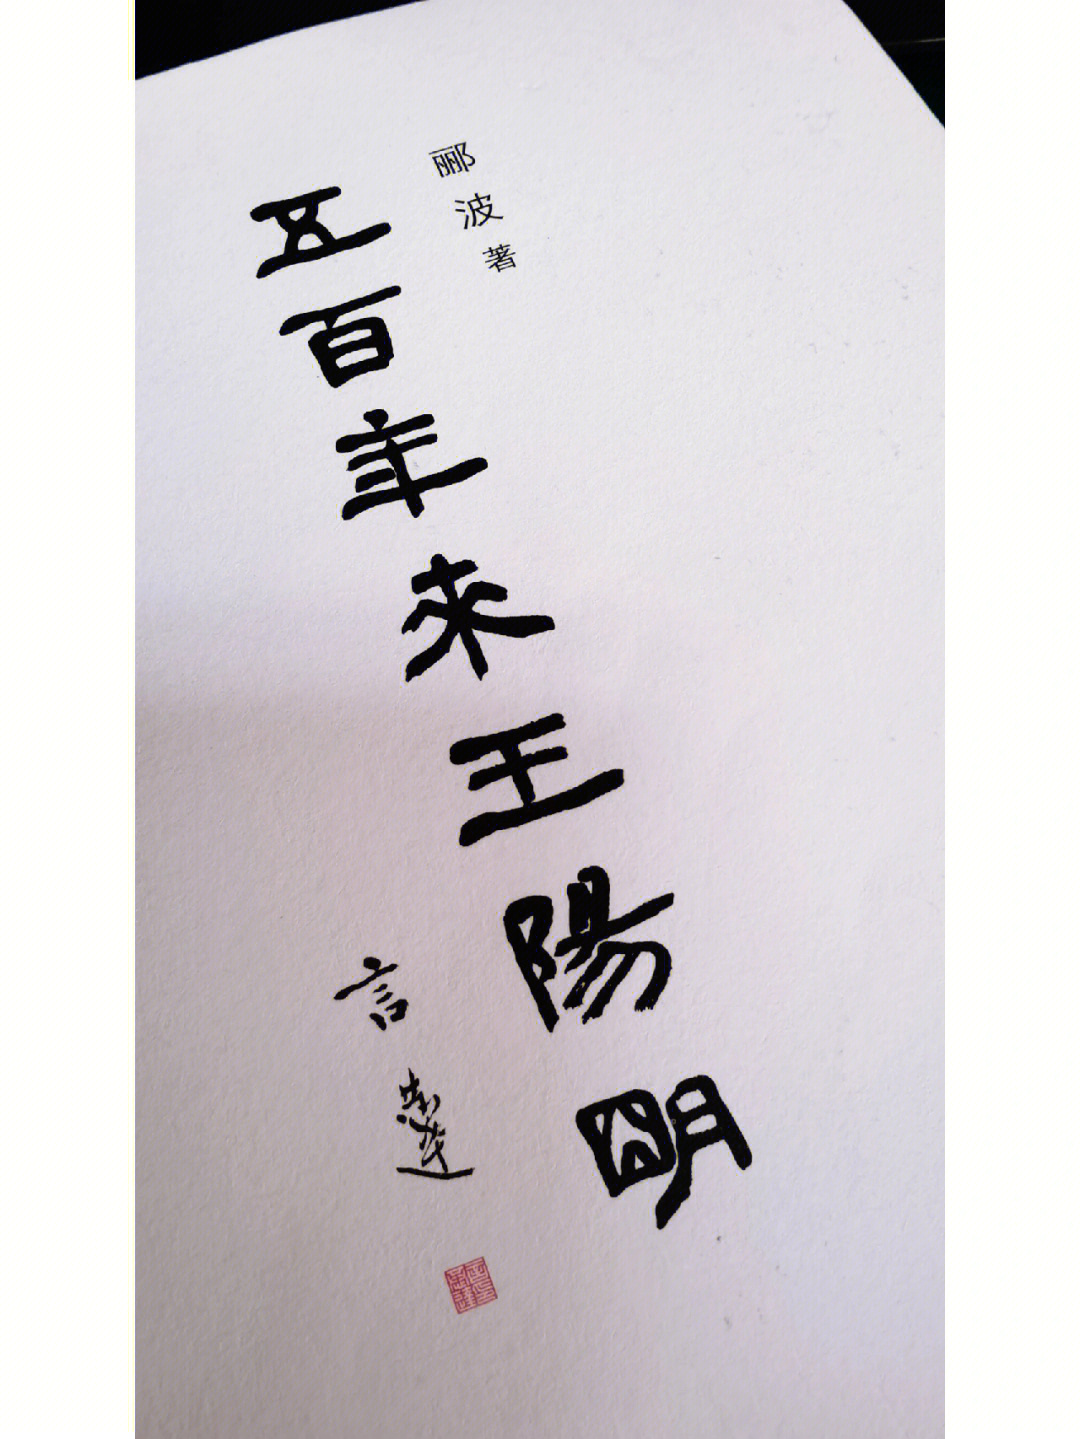 郦波著
五百年来王陽明
言恭達